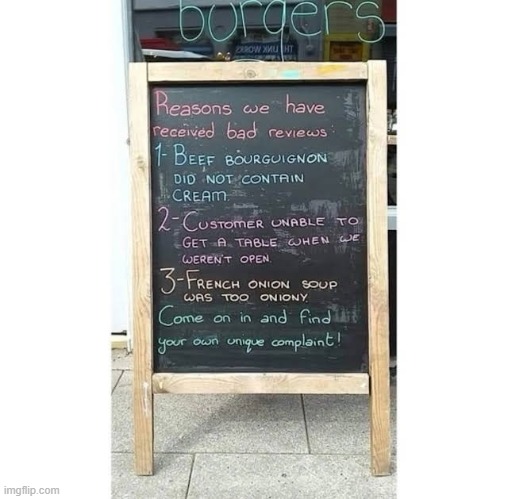 burgers
THE LINK WORKS
Reasons we have
received bad reviews:
1- BEEF BOURGUIGNON
DID NOT CONTAIN
CREAM.
2- CUSTOMER UNABLE TO
GET A TABLE WHEN WE
WEREN'T OPEN.
3- FRENCH ONION SOUP
WAS TOO ONIONY.
Come on in and find
your own unique complaint!
imgflip.com